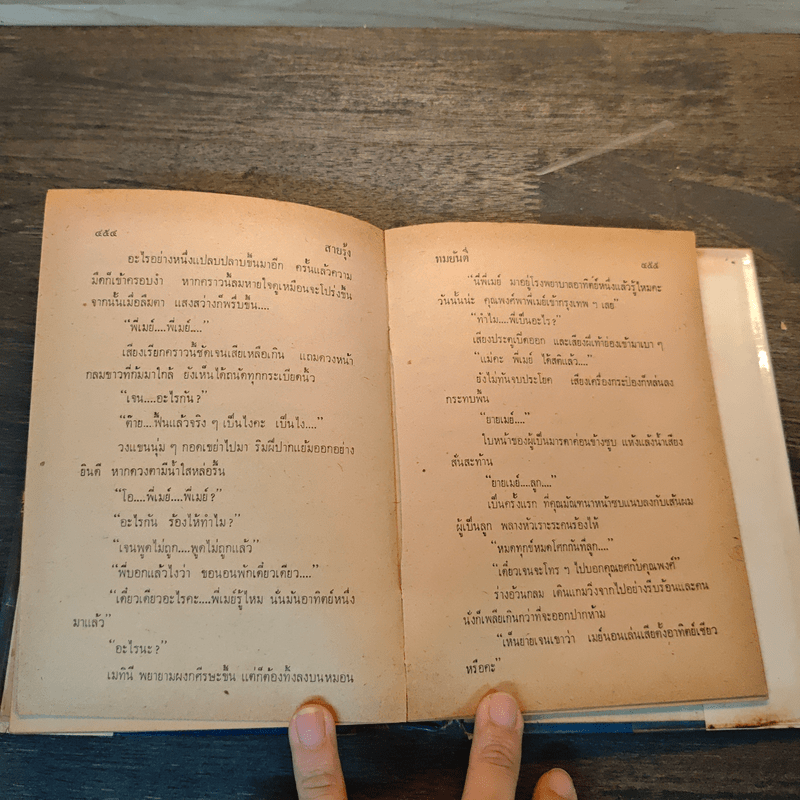 ๔๕๔
สายรุ้ง
อะไรอย่างหนึ่งแปลบปลาบขึ้นมาอีก ครั้นแล้วความ
มืดก็เข้าครอบงำ หากคราวนี้ลมหายใจดูเหมือนจะโปร่งขึ้น
จากนั้นเมื่อลืมตา แสงสว่างก็พรึบขึ้น....
“พี่เมย์....พี่เมย์....”
เสียงเรียกคราวนี้ชัดเจนเสียเหลือเกิน แถมดวงหน้า
กลมขาวที่ก้มมาใกล้ ยังเห็นได้ถนัดทุกกระเบียดนิ้ว
“เจน....อะไรกัน?”
“ต๊าย...ฟื้นแล้วจริง ๆ เป็นไงคะ เป็นไง....”
วงแขนนุ่ม ๆ กอดเขย่าไปมา ริมฝีปากแย้มออกอย่าง
ยินดี หากดวงตามีน้ำใสหล่อรื้น
“โอ....พี่เมย์....พี่เมย์?”
“อะไรกัน ร้องไห้ทำไม?”
“เจนพูดไม่ถูก....พูดไม่ถูกแล้ว”
“พี่บอกแล้วไงว่า ขอนอนพักเดี๋ยวเดียว....”
“เดี๋ยวเดียวอะไรคะ....พี่เมย์รู้ไหม นั่นมันอาทิตย์หนึ่ง
มาแล้ว”
“อะไรนะ?”
เมทินี พยายามผงกศีรษะขึ้น แต่ก็ต้องทิ้งลงบนหมอน
ทมยันตี
๔๕๕
“นี่พี่เมย์ มาอยู่โรงพยาบาลอาทิตย์หนึ่งแล้วรู้ไหมคะ
วันนั้นน่ะ คุณพงศ์พาพี่เมย์เข้ากรุงเทพ ฯ เลย”
“ทำไม....พี่เป็นอะไร?”
เสียงประตูเปิดออก และเสียงฝีเท้าย่องเข้ามาเบา ๆ
“แม่คะ พี่เมย์ ได้สติแล้ว....”
ยังไม่ทันจบประโยค เสียงเครื่องกระป๋องก็หล่นลง
กระทบพื้น
“ยายเมย์....”
ใบหน้าของผู้เป็นมารดาค่อนข้างซูบ แห้งแล้งน้ำเสียง
สั่นสะท้าน
“ยายเมย์....ลูก....”
เป็นครั้งแรก ที่คุณมัณฑนาหน้าซบแนบลงกับเส้นผม
ผู้เป็นลูก พลางหัวเราะระคนร้องไห้
“หมดทุกข์หมดโศกกันทีลูก....”
“เดี๋ยวเจนจะโทร ๆ ไปบอกคุณยศกับคุณพงศ์”
ร่างอ้วนกลม เดินแกมวิ่งจากไปอย่างรีบร้อนและคน
นั่งก็เพลียเกินกว่าที่จะออกปากห้าม
“เห็นยายเจนเขาว่า เมย์นอนเล่นเสียตั้งอาทิตย์เชียว
หรือคะ”